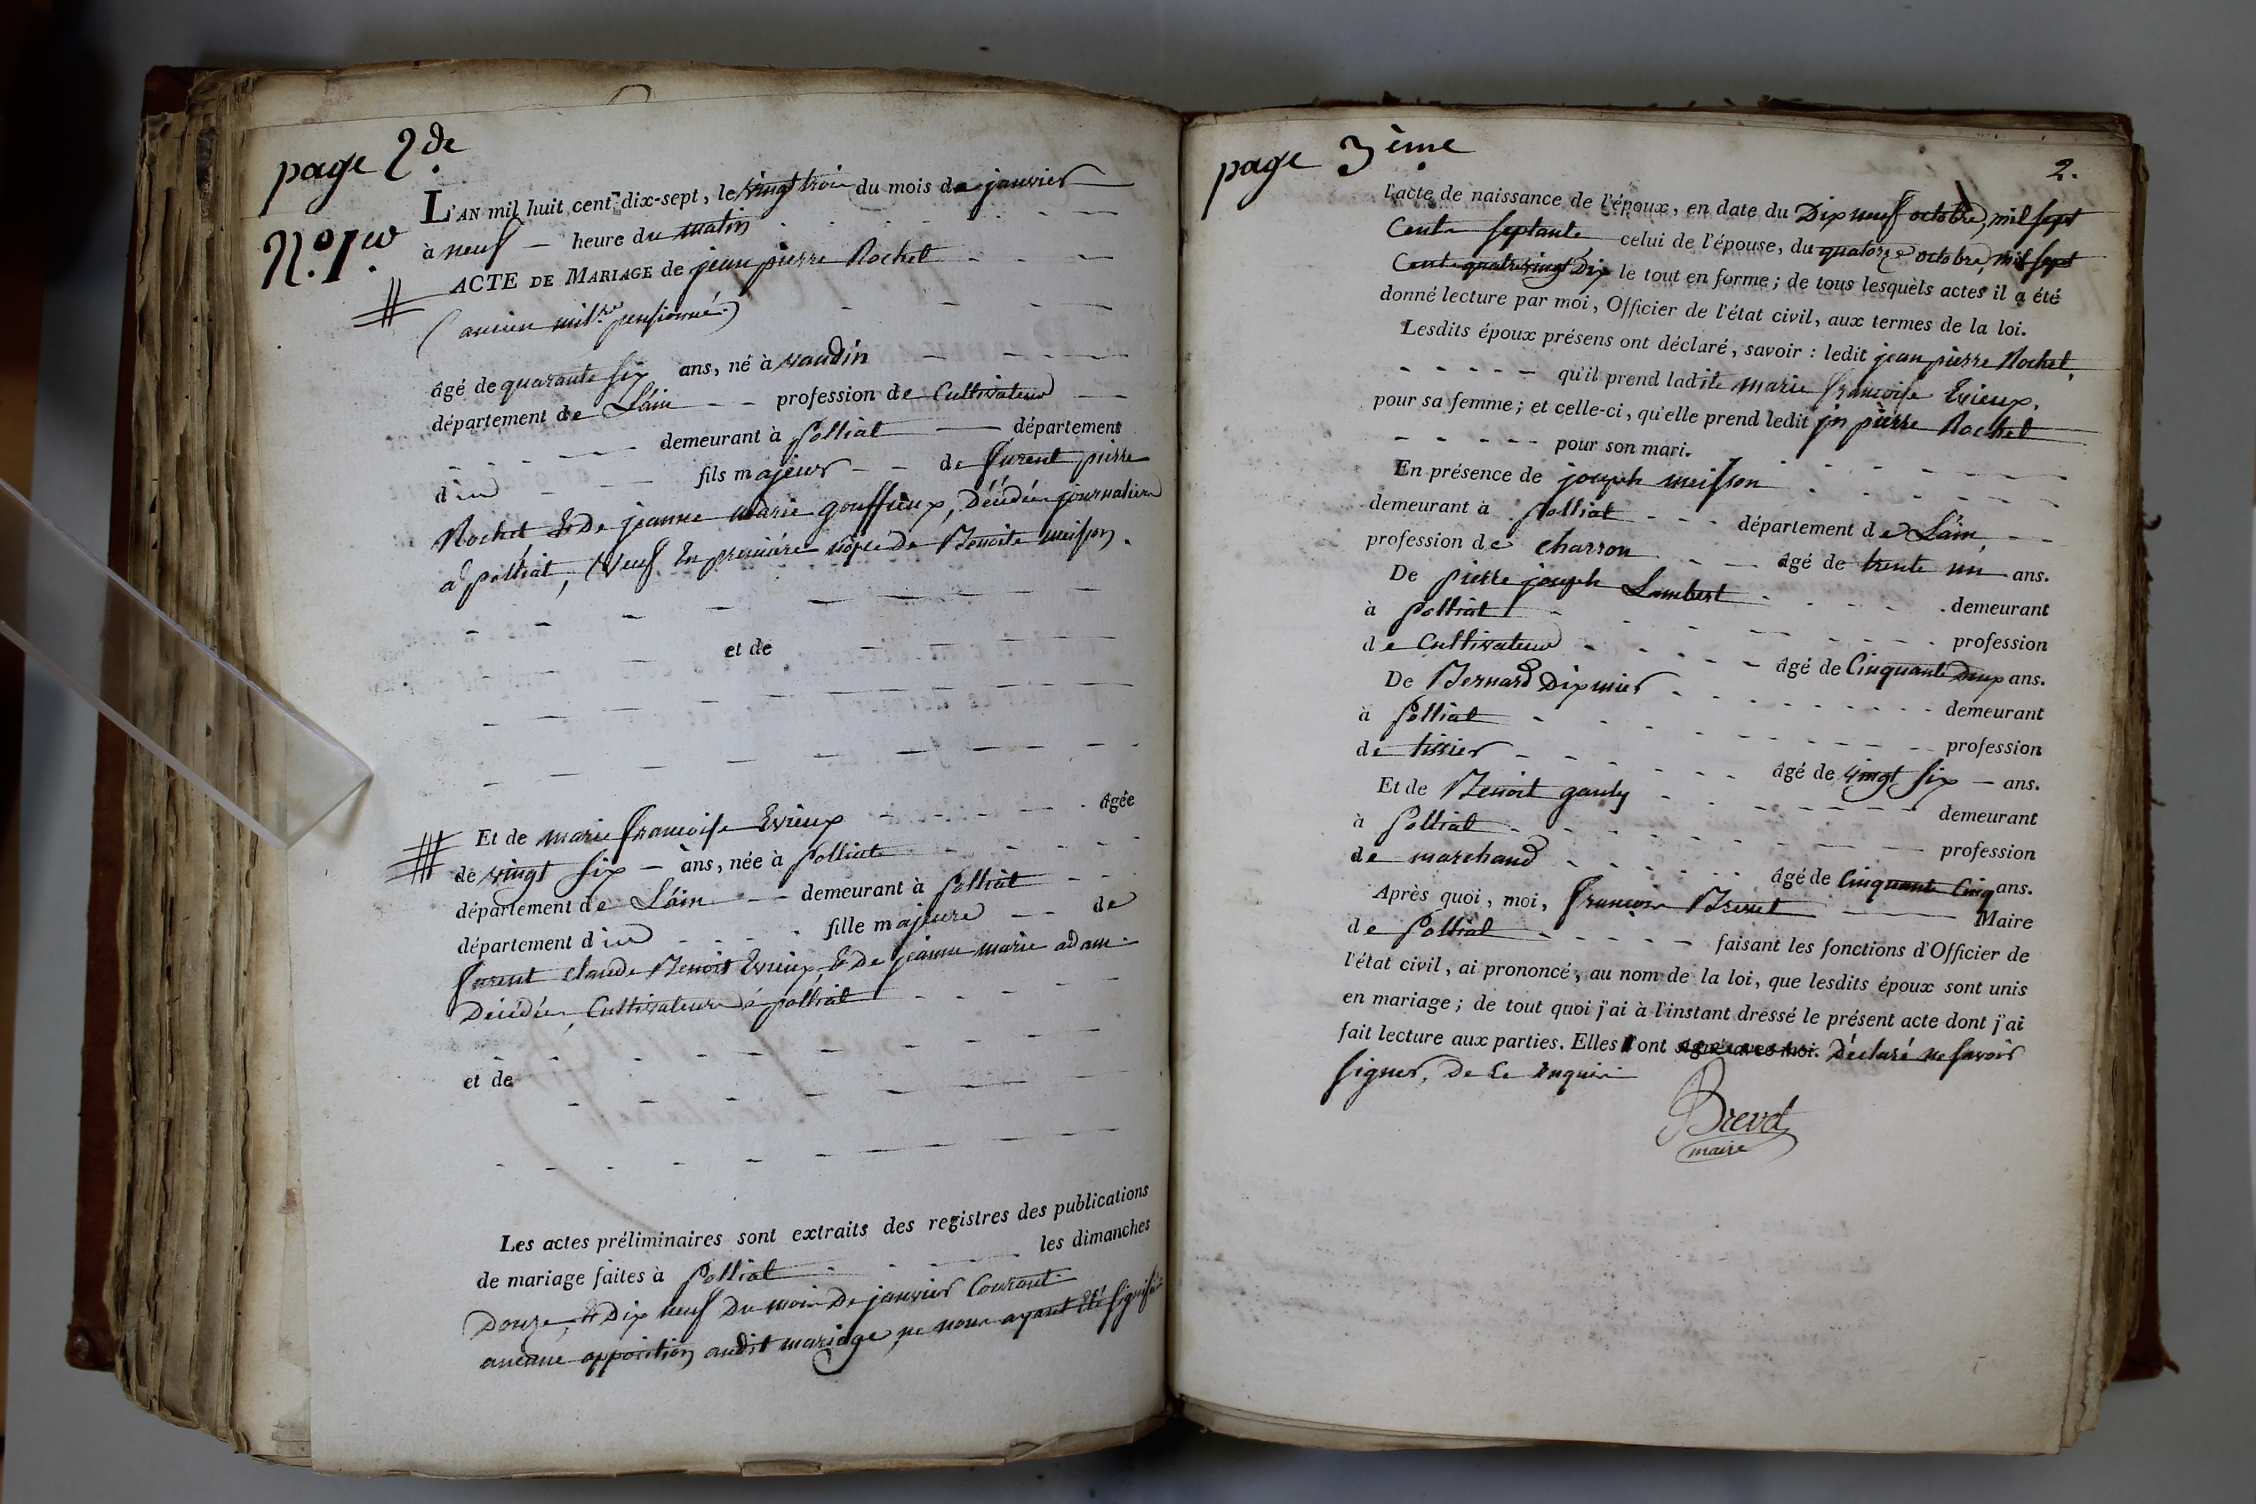 page 2.de
N.o 1.er
L'AN mil huit cent dix-sept, le vingt trois du mois de janvier
à neuf - heure du matin
ACTE DE MARIAGE de jean pierre Rochet
(ancien mil.re pensionné.)
âgé de quarante six ans, né à vandin
département de L'ain - - profession de Cultivateur
demeurant à polliat - département
d'in fils majeur - - de furent pierre
Rochet & De jeanne marie gouffieux, Décédés journaliers
à polliat, Veuf en première nopce De Benoite meisson.
et de
Et de marie francoise Evieux âgée
de vingt six - ans, née à Polliat
département de L'ain - - demeurant à polliat
département d'in fille majeure - - de
furent claude Benoit Evieux, & De jeanne marie adam
Décédés, Cultivateurs à polliat
et de
Les actes préliminaires sont extraits des registres des publications
de mariage faites à Polliat les dimanches
Douze, & Dix neuf Du mois De janvier Courant.
aucune opposition audit mariage, ne nous ayant été signifiée
page 3ème
2.
l'acte de naissance de l'époux, en date du Dix neuf octobre, mil sept
Cents septante celui de l'épouse, du quatorze octobre, mil sept
Cents quatre vingt Dix le tout en forme ; de tous lesquels actes il a été
donné lecture par moi, Officier de l'état civil, aux termes de la loi.
Lesdits époux présens ont déclaré, savoir : ledit jean pierre Rochet,
qu'il prend ladite marie francoise Evieux,
pour sa femme ; et celle-ci, qu'elle prend ledit jn pierre Rochet
pour son mari.
En présence de joseph meisson
demeurant à Polliat département de L'ain
profession de charron âgé de trente un ans.
De pierre joseph Lambert demeurant
à Polliat profession
de Cultivateur âgé de Cinquante Deux ans.
De Bernard Dixmier demeurant
à Polliat profession
de tissier âgé de vingt six - ans.
Et de Benoit gauly demeurant
à Polliat profession
de marchand âgé de Cinquante Cinq ans.
Après quoi, moi, françois Brevet Maire
de Polliat faisant les fonctions d'Officier de
l'état civil, ai prononcé, au nom de la loi, que lesdits époux sont unis
en mariage ; de tout quoi j'ai à l'instant dressé le présent acte dont j'ai
fait lecture aux parties. Elles ont signé avec moi. Déclaré ne savoir
signer, De Ce Enquis
Brevet
maire